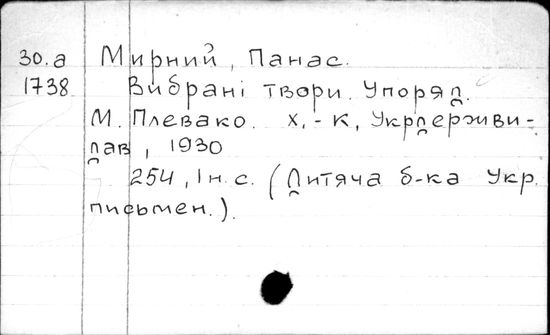 30.а Мирний, Панас.
1738 Вибрані твори. Упоряд.
М. Плевако. Х.-К, Укрдержви-
дав, 1930
254, 1н. с. (Дитяча б-ка Укр.
письмен.).